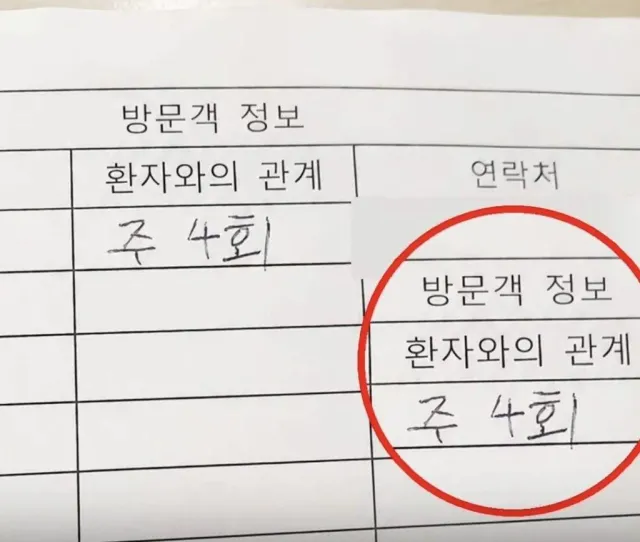 방문객 정보
환자와의 관계 연락처
주 4회
방문객 정보
환자와의 관계
주 4회